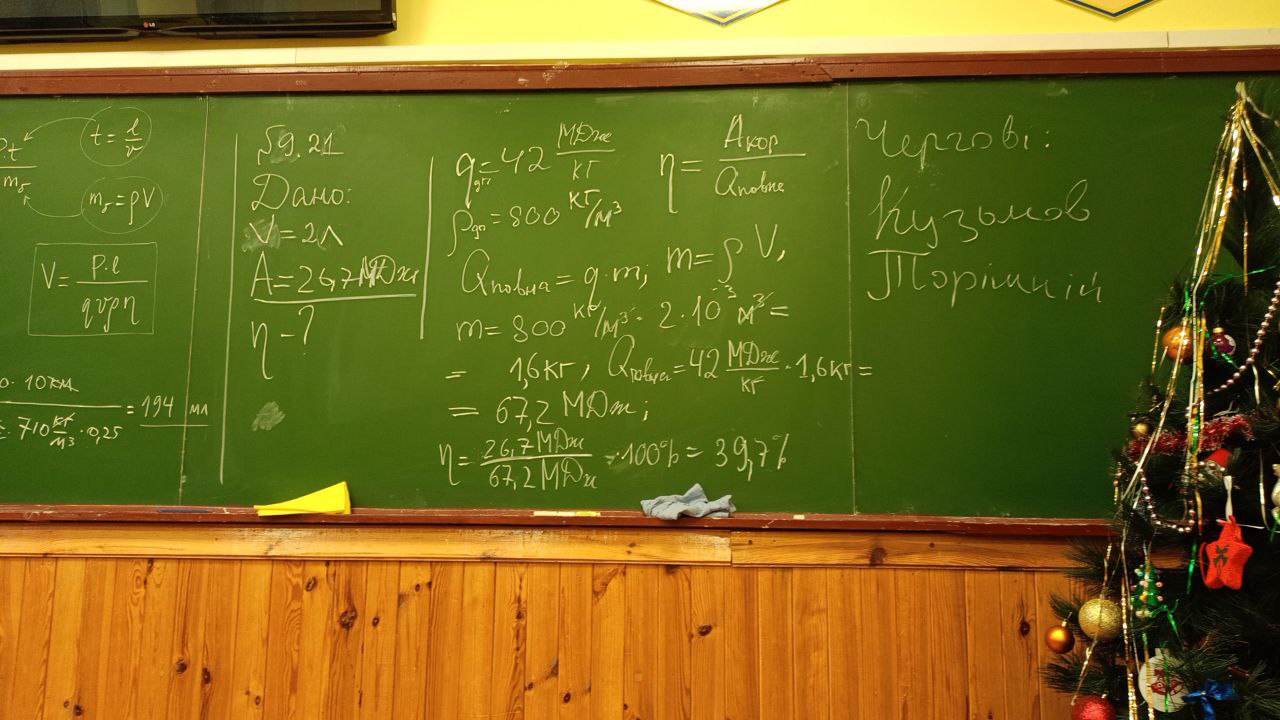 LG
P·t
m₅
t = l/v
m₅ = ρV
V = P·l / qvρη
0 · 10км
710 кг/м³ · 0,25
= 194 мл
№9.21
Дано:
V = 2л
A = 26,7 МДж
η - ?
q дп = 42 МДж/кг
ρ дп = 800 кг/м³
η = Aкор / Qповна
Qповна = q·m; m = ρV,
m = 800 кг/м³ · 2·10⁻³ м³ =
= 1,6 кг, Qповна = 42 МДж/кг · 1,6 кг =
= 67,2 МДж;
η = 26,7 МДж / 67,2 МДж · 100% = 39,7%
Чергові:
Кузьмов